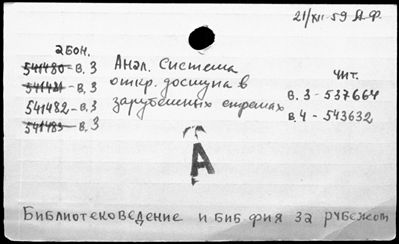 21/XII-59 Я.Ф.
2БОН.
541480-В.3
541481-В.3
541482-В.3
541483-В.3
Анал. Система
откр. доступа в
зарубешних странах
ЧИТ.
В.3-537664
В.4-543632
А
Библиотековедение и биб.фия за рубежом